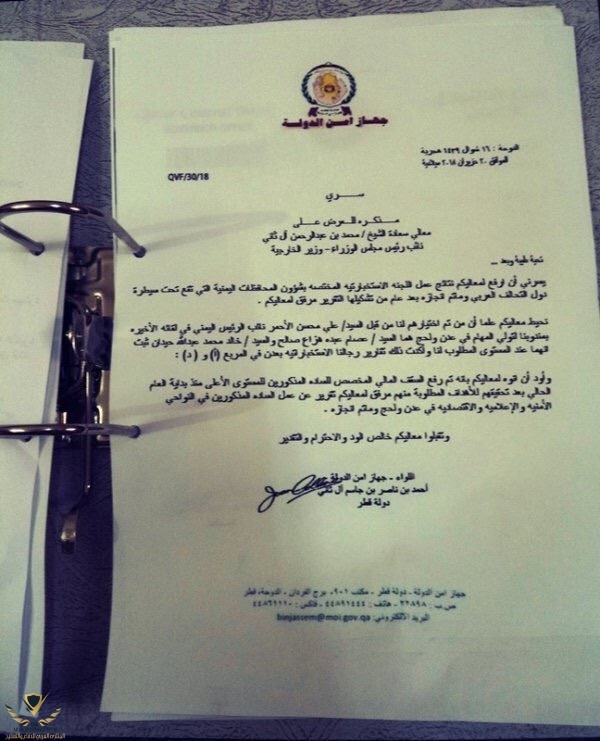 جهاز امن الدولة
الدوحة : ١٦ شوال ١٤٣٩ هجرية
الموافق ٣٠ حزيران ٢٠١٨ ميلادية
QVF/30/18
ســـري
مذكره للعرض على
معالي سعادة الشيخ / محمد بن عبدالرحمن آل ثاني
نائب رئيس مجلس الوزراء - وزير الخارجية
تحية طيبة وبعد ..
يسرني أن ارفع لمعاليكم نتائج عمل اللجنه الاستخباراتيه المختصه بشؤون المحافظات اليمنية التي تقع تحت سيطرة
دول التحالف العربي وماتم انجازه بعد عام من تشكيلها التقرير مرفق لمعاليكم .
نحيط معاليكم علما أن من تم اختيارهم لنا من قبل السيد/ علي محسن الأحمر نائب الرئيس اليمني في لقائه الأخير
بمندوبنا لتولي المهام في عدن ولحج هما السيد / عصام عبده هزاع صالح والسيد / خالد محمد عبدالله حيدان ثبت
انهما عند المستوى المطلوب لنا وأكدت ذلك تقارير رجالنا الاستخباراتيه بعدن في المربع (أ) و ( د ) :
وأود أن انوه لمعاليكم بانه تم رفع السقف المالي المخصص للساده المذكورين للمستوى الأعلى منذ بداية العام
الحالي بعد تحقيقهم للأهداف المطلوبة منهم مرفق لمعاليكم تقرير عن عمل الساده المذكورين في النواحي
الأمنيه والإعلاميه والاقتصاديه في عدن ولحج وماتم انجازه .
وتقبلوا معاليكم خالص الود والاحترام والتقدير
اللواء - جهاز امن الدولة
أحمد بن ناصر بن جاسم آل ثاني
دولة قطر
جهاز امن الدولة - دولة قطر - مكتب ٩٠١ برج الفردان - الدوحة، قطر
ص.ب : ٢٢٨٩٨ - هاتف : ٤٤٨٩١٤٤٤ - فاكس : ٤٤٨٦١١١٠
البريد الالكتروني: binjassem@moi.gov.qa